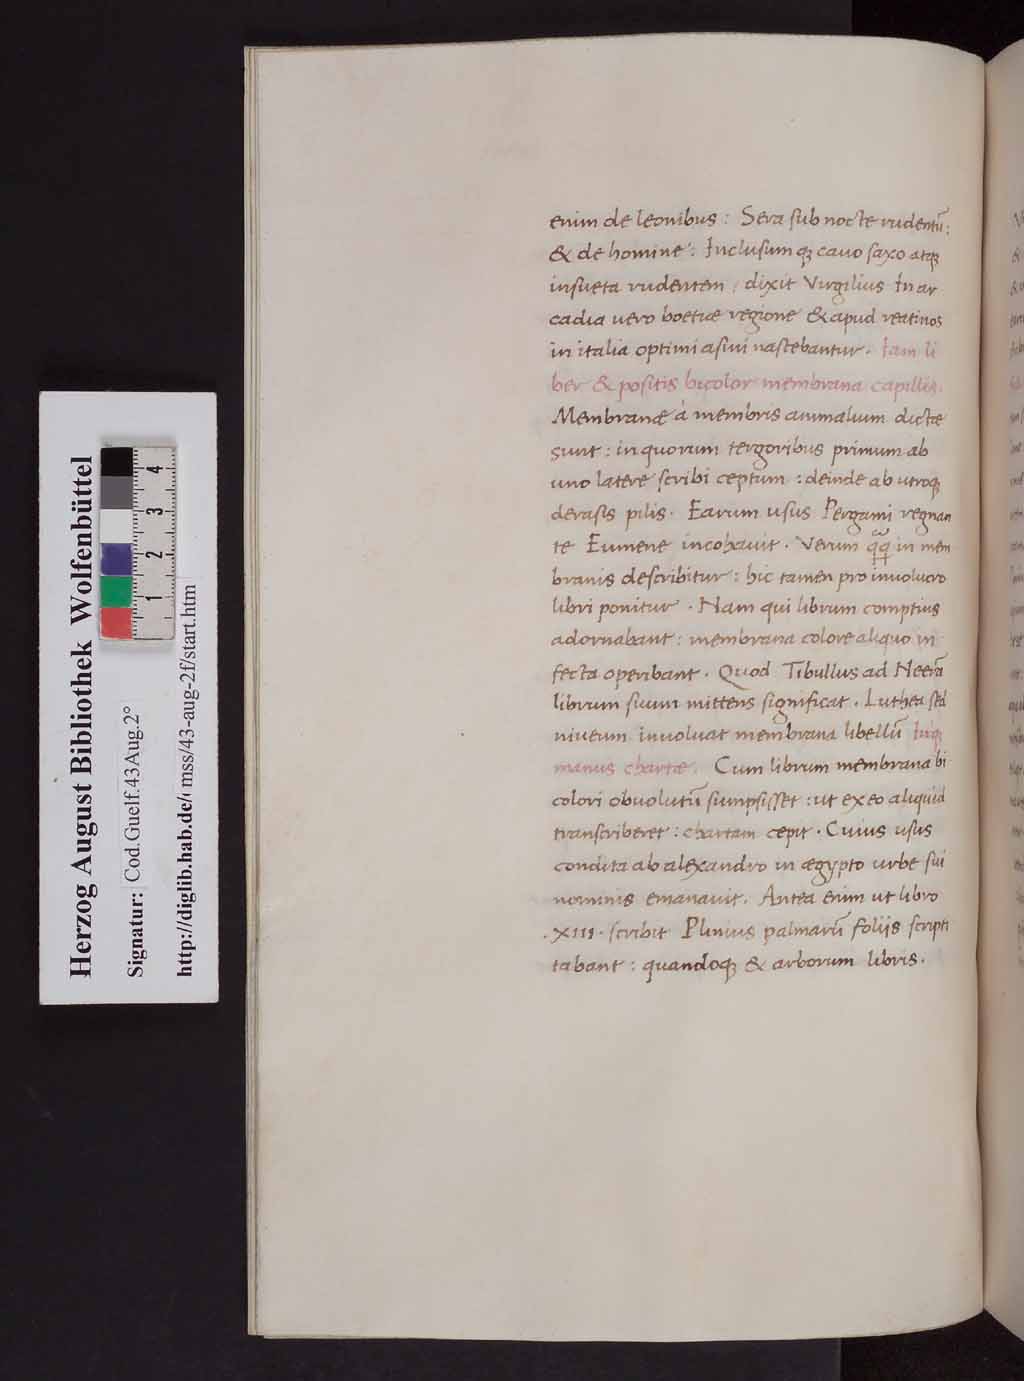 Herzog August Bibliothek Wolfenbüttel
Signatur: Cod.Guelf.43Aug.2°
http://diglib.hab.de/ mss/43-aug-2f/start.htm
1 2 3 4
enim de leonibus : Sera sub nocte rudentū :
& de homine : Inclusumq; cauo saxo atq;
insueta rudentem , dixit Virgilius In ar
cadia uero boetiæ regione & apud reatinos
in italia optimi asini nascebantur . Iam li
ber & positis bicolor membrana capillis .
Membranæ à membris animalium dictæ
sunt : in quorum tergoribus primum ab
uno latere scribi ceptum : deinde ab utroq;
derasis pilis . Earum usus Pergami regnan
te Eumene incohauit . Verum qq in mem
branis describitur : hic tamen pro inuolucro
libri ponitur . Nam qui librum comptius
adornabant : membrana colore aliquo in
fecta operibant . Quod Tibullus ad Neerā
librum suum mittens significat . Luthea sed
niueum inuoluat membrana libellū Inq;
manus chartæ . Cum librum membrana bi
colori obuolutū sumpsisset : ut ex eo aliquid
transcriberet : chartam cepit . Cuius usus
condita ab alexandro in ægypto urbe sui
nominis emanauit . Antea enim ut libro
. XIII . scribit Plinius palmarū folijs scripti
tabant : quandoq; & arborum libris .